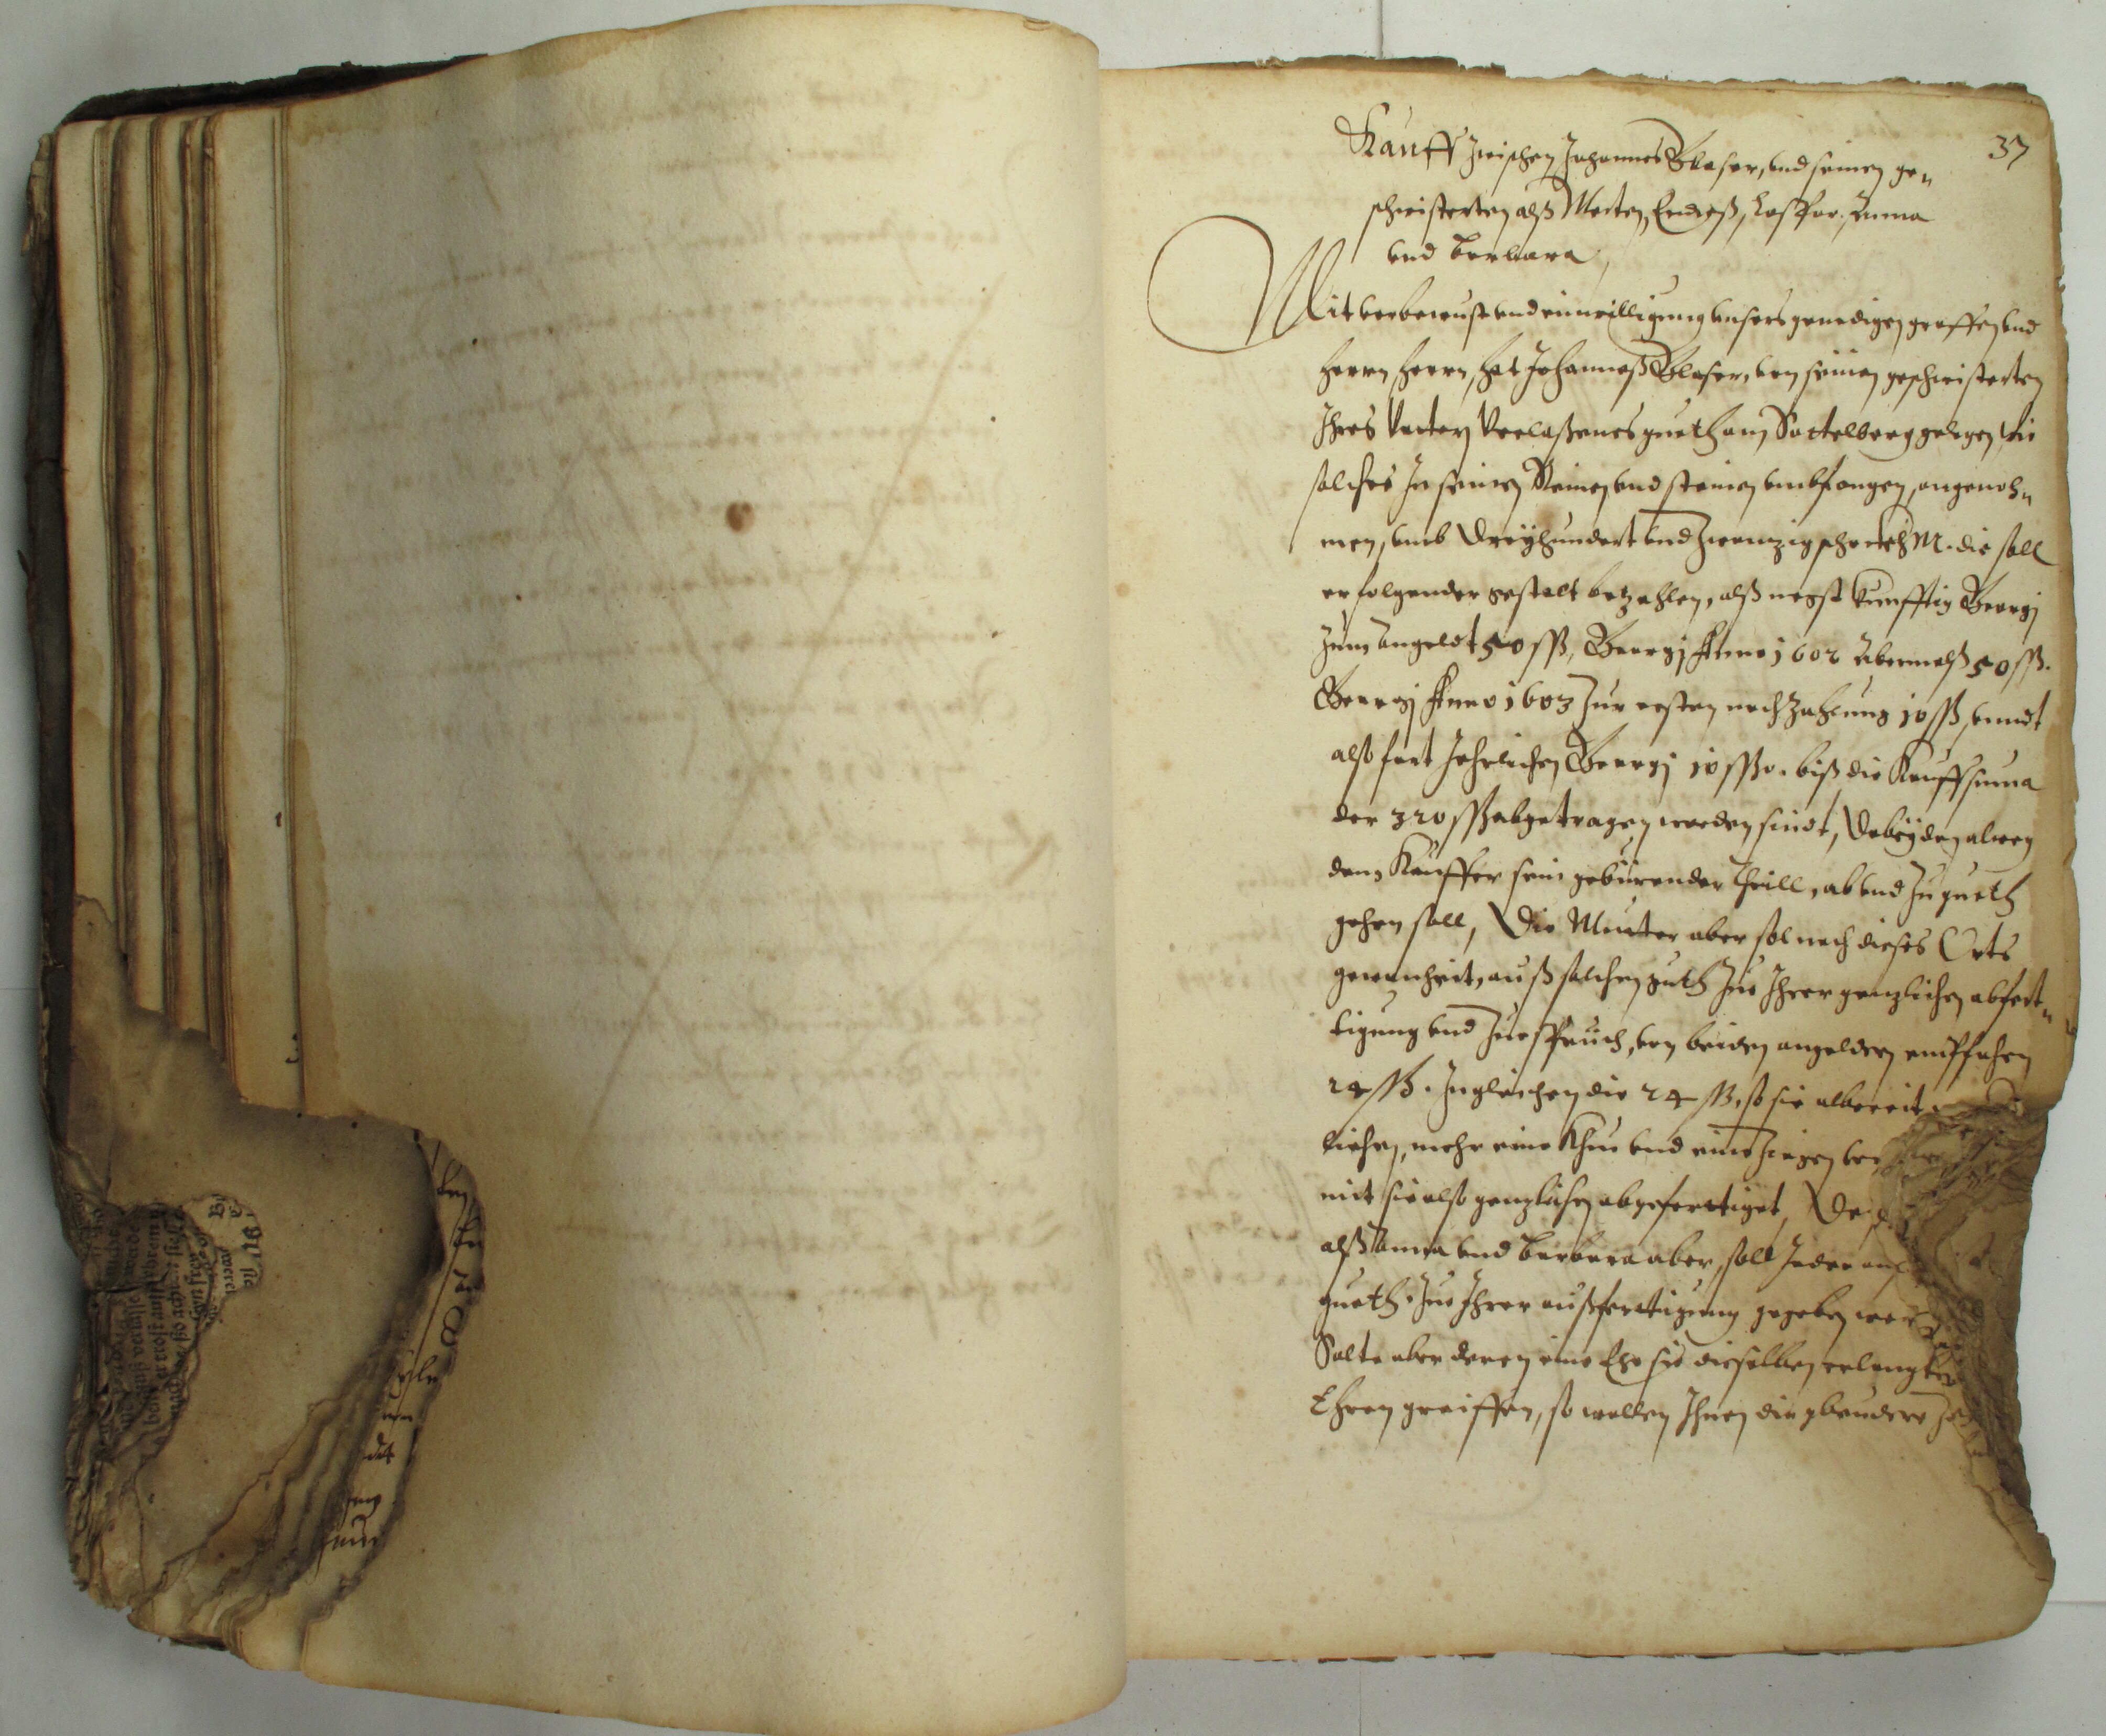 37
Kauff zwischen Johannes Glaser, und seinen ge„
schwisterten alß Merten, Endreß, Casspar, Anna
und Barbara,
Mit vorbewust und einwilligung unsers genedigen graffen und
herrn herrn, hat Johanneß Glaser, von seinen geschwisterten
Ihres Vatern Verlaßenes gueth am Sattelberg gelegen, wie
solches In seinen Reinen und steinen umbfangen, angenoh„
men, umb Dreÿhundert und zwanzig schwerth M. die soll
er folgender gestalt bezahlen, alß negst kunfftig Georgj
zum Angeldt 50 ß, Georgj Anno 1602 Abermalß 50 ß.
Georgj Anno 1603 zur ersten nachzahlung 10 ß, unndt
also fort Jehrlichen Georgj 10 ß. biß die Kauffsuma
der 320 ß abgetragen worden sindt, Dabeÿ den alweg
dem Kauffer sein gebürender theill, ab und zu gueth
gehen soll, Die Mutter aber sol nach dieses Orts
gewonheit, auß solchen guth zue Ihrer genzlichen abfert„
tigung und zuespruch, von beiden angeldern empfahen
24 ß. Ingleichen die 24 ß, so sie albereit
liehen, mehr eine Khue und eine ziegen
mit sie also genzlichen abgefertiget,
alß Anna und Barbara aber, soll Jeder
gueth zue Ihrer außfertigung gegeben
Solte aber deren eine Ehe sie dieselben erlangt
Ehren greiffen, so wollen Ihnen die gbrudere